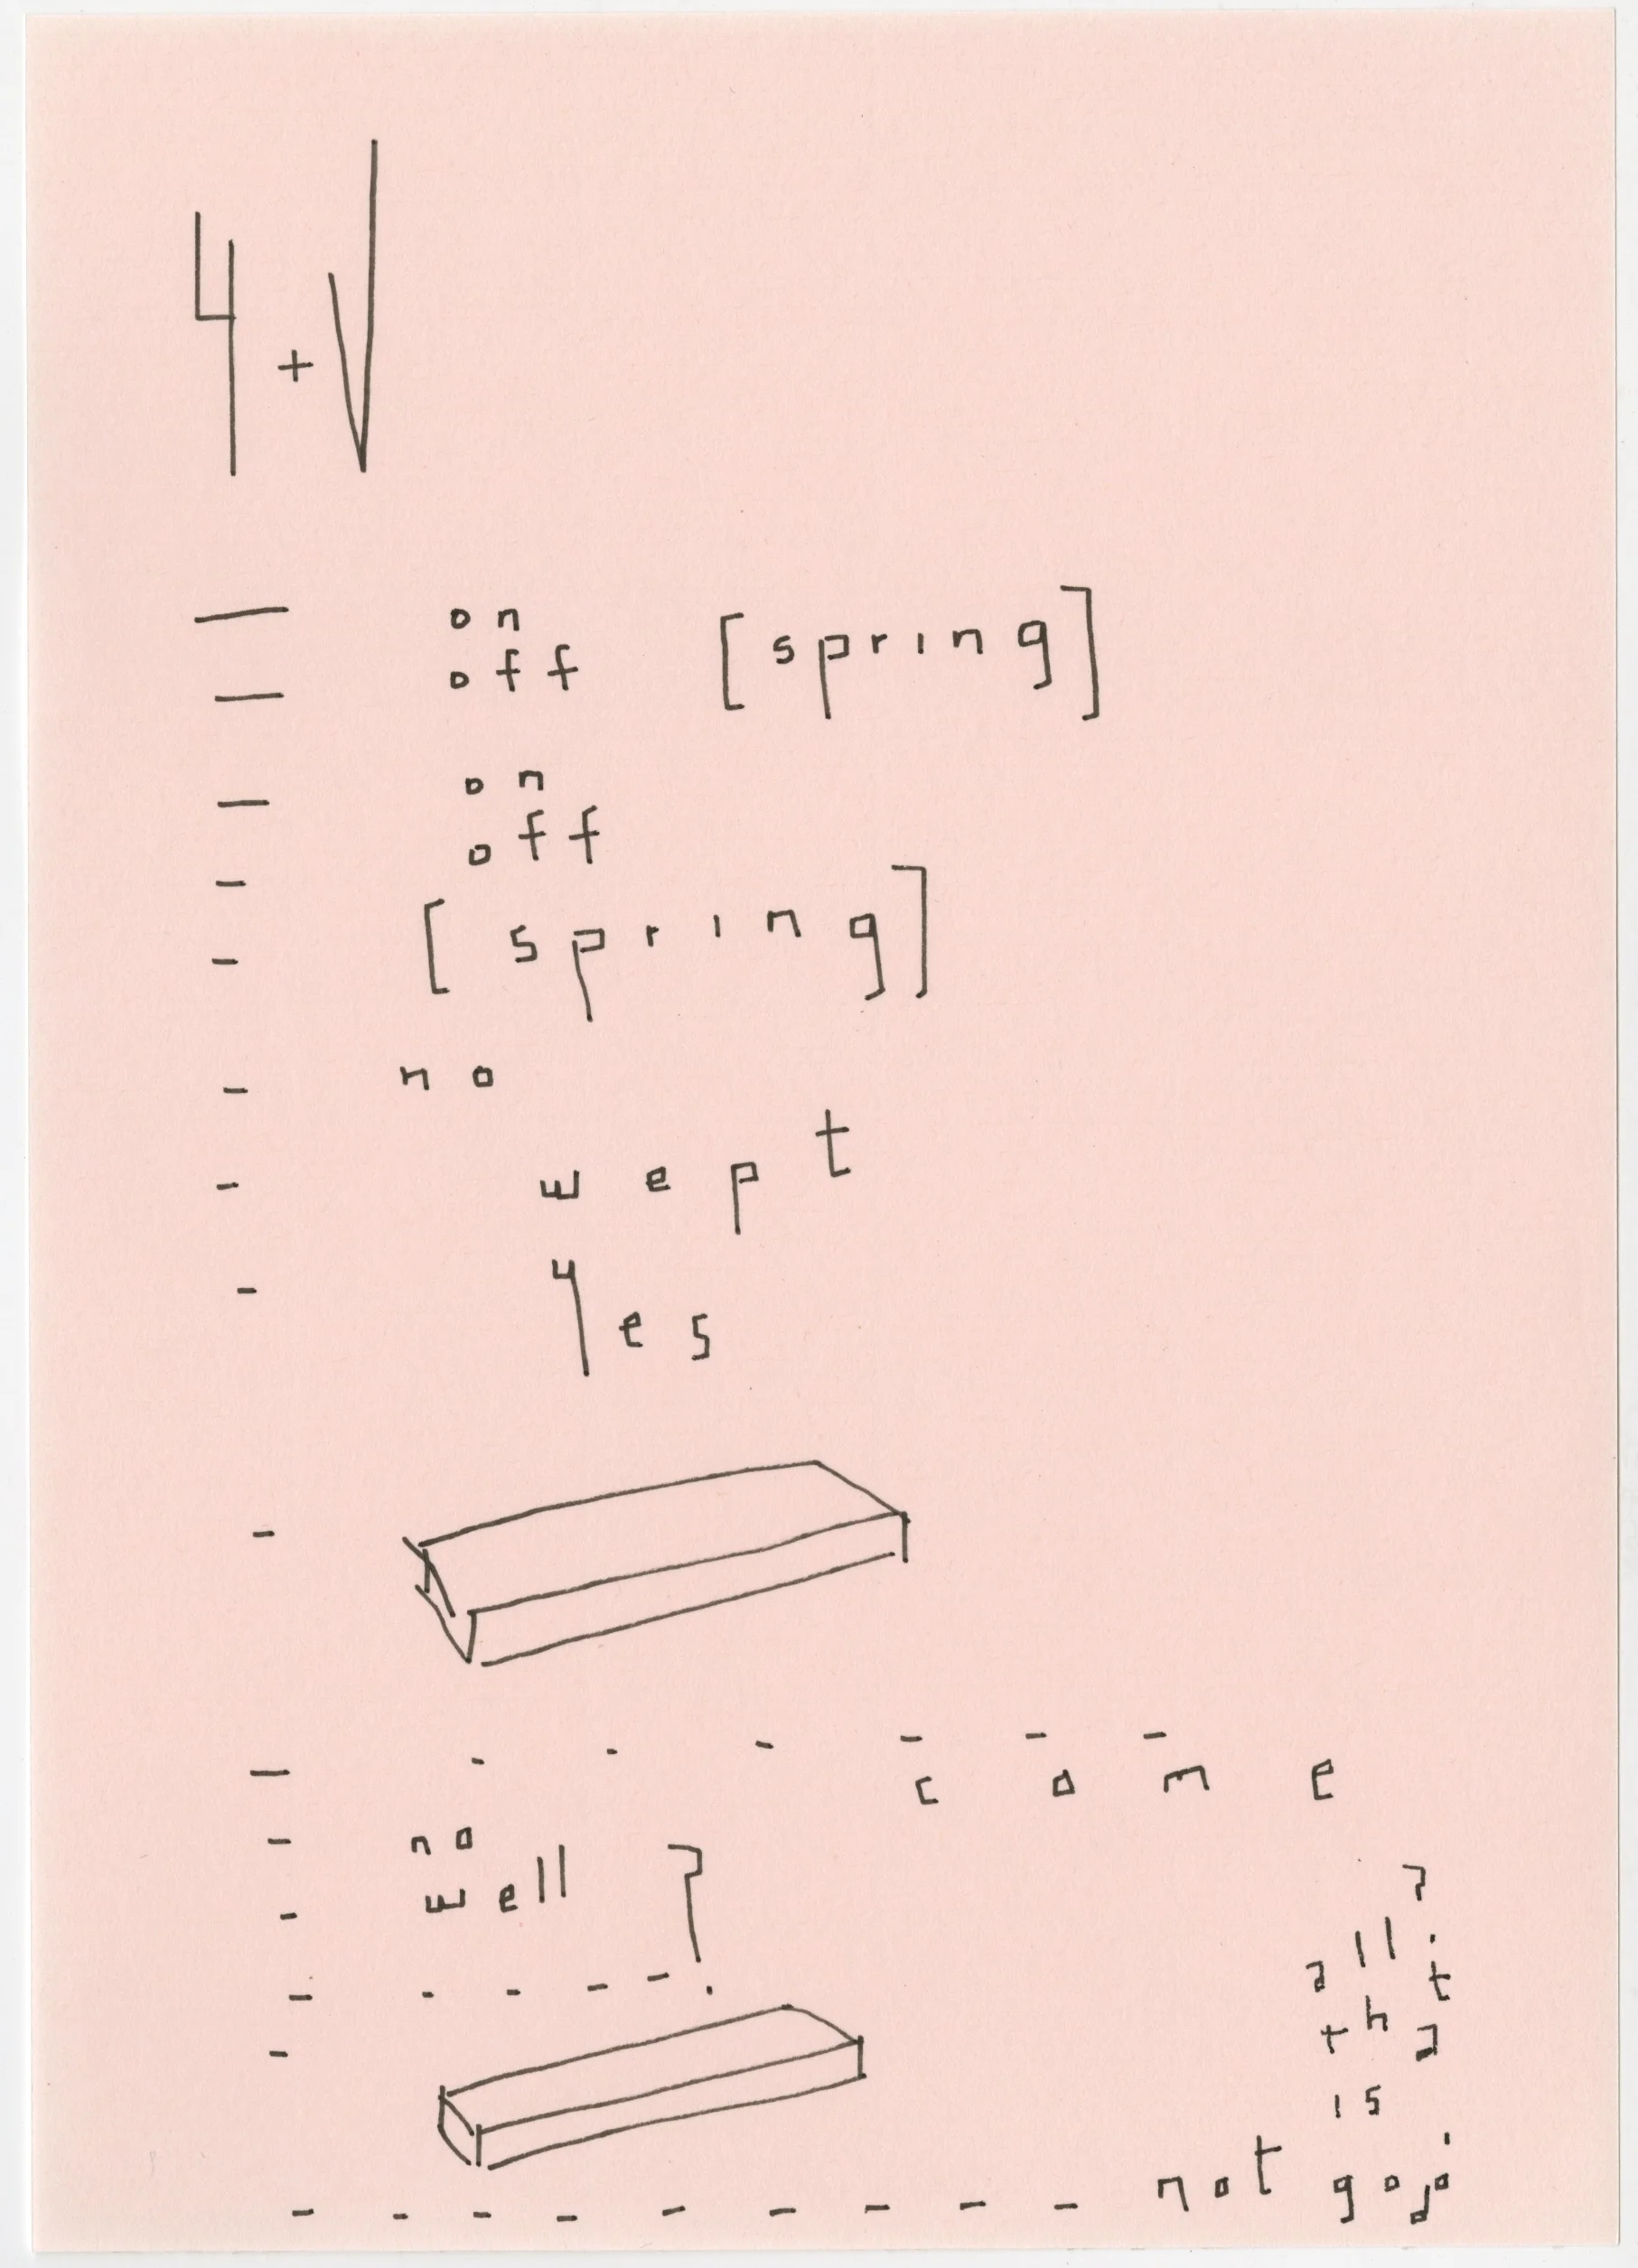 4 + √
— on
— off [spring]
— on
- off
- [spring]
- no
- wept
- yes
-
— - - - - - -
come
- no
- well ?
- - - - -
-
all
that
is
- - - - - - - - - not